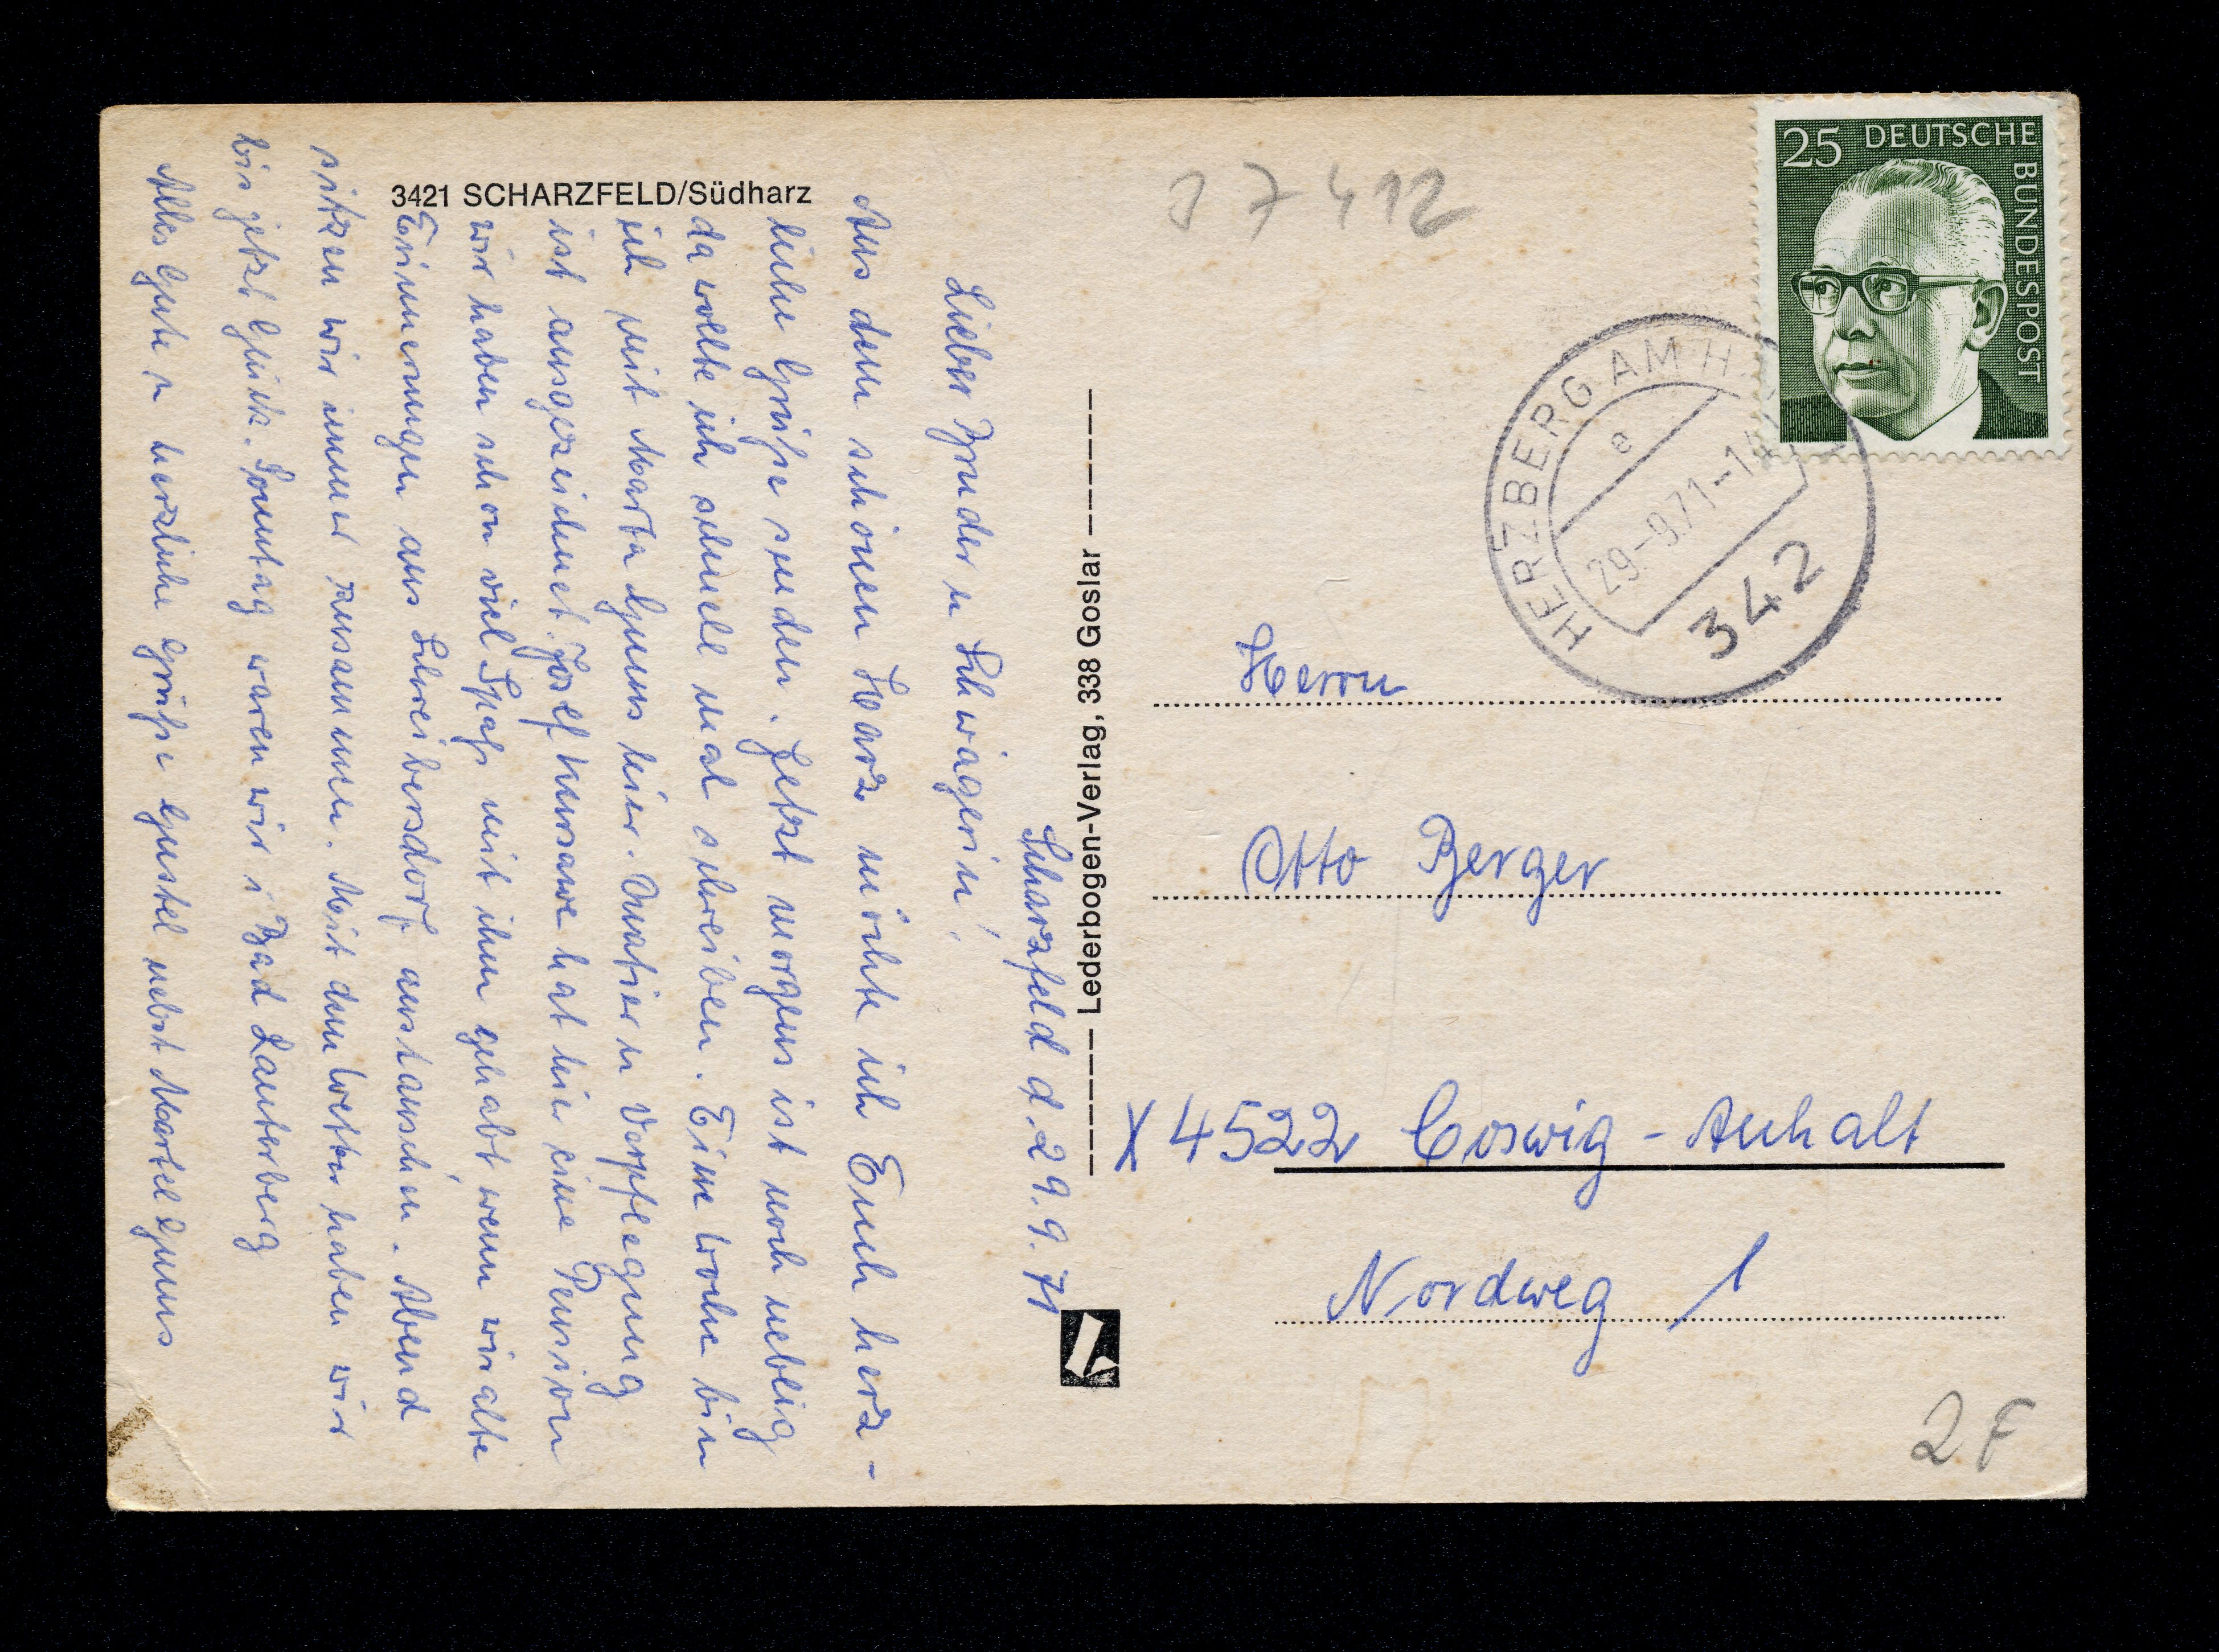 3421 SCHARZFELD/Südharz
Scharzfeld d. 29.9.71
Lieber Bruder u Schwägerin!
Aus dem schönen Harz möchte ich Euch herz-
liche Grüße senden. Jetzt morgens ist noch neblig
da wollte ich schnell mal schreiben. Eine Woche bin
ich mit Marta Guns hier. Quatier u Verpflegung
ist ausgezeichnet. Josef hat hier eine Pension
wir haben schon viel Spaß mit ihm gehabt, wenn wir alte
Erinnerungen aus Schreibersdorf austauschen. Abend
sitzen wir immer zusammen. Mit dem Wetter haben wir
bis jetzt Glück. Sonntag waren wir i Bad Lauterberg
Alles Gute u herzliche Grüße Gustel nebst Martel Guns
Lederbogen-Verlag, 338 Goslar
37412
25 DEUTSCHE BUNDESPOST
HERZBERG AM H
e
29-9.71-14
342
Herrn
Otto Berger
X 4522 Coswig - Anhalt
Nordweg 1
2F